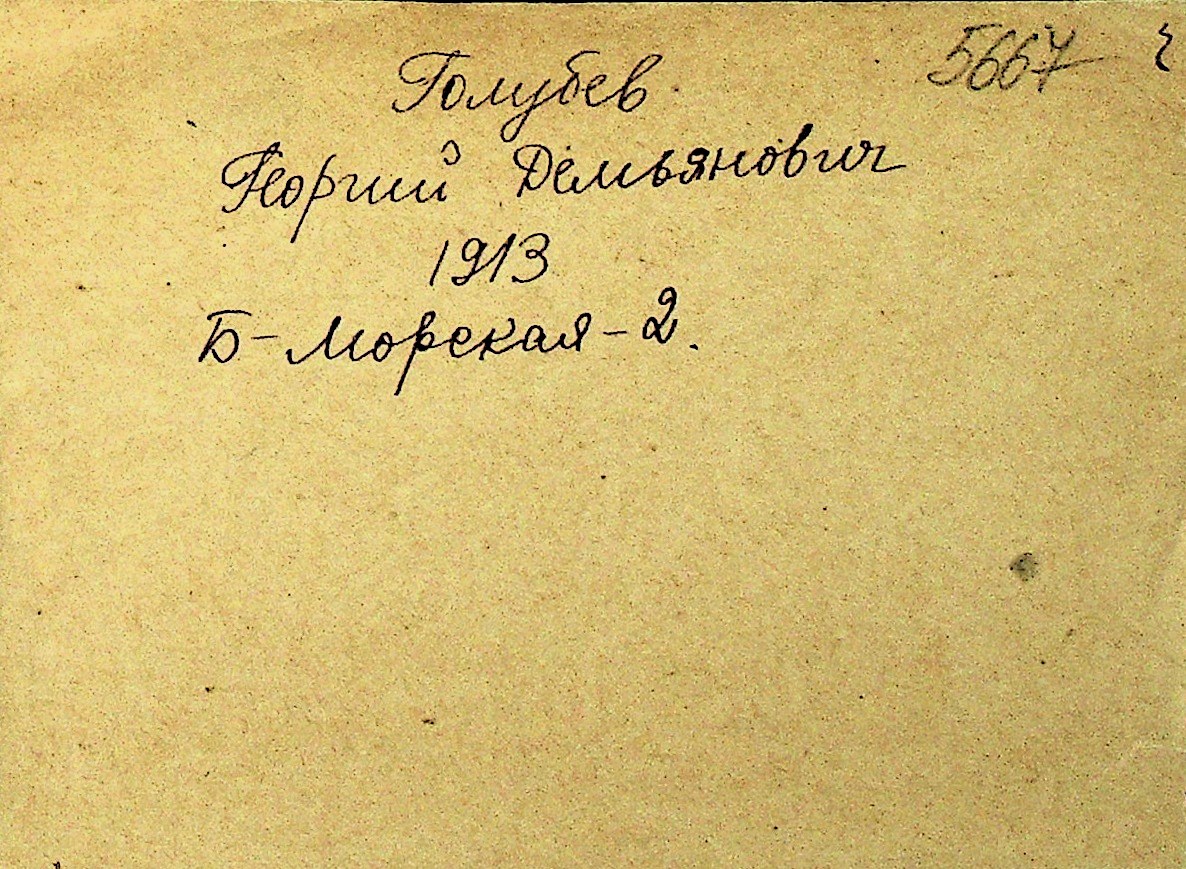 5667
Голубев
Георгий Демьянович
1913
Б-Морская-2.